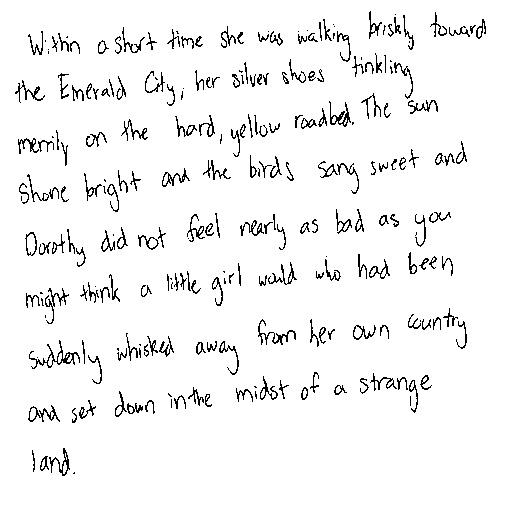 Within a short time she was walking briskly toward
the Emerald City, her silver shoes tinkling
merrily on the hard, yellow roadbed. The sun
shone bright and the birds sang sweet and
Dorothy did not feel nearly as bad as you
might think a little girl would who had been
suddenly whisked away from her own country
and set down in the midst of a strange
land.